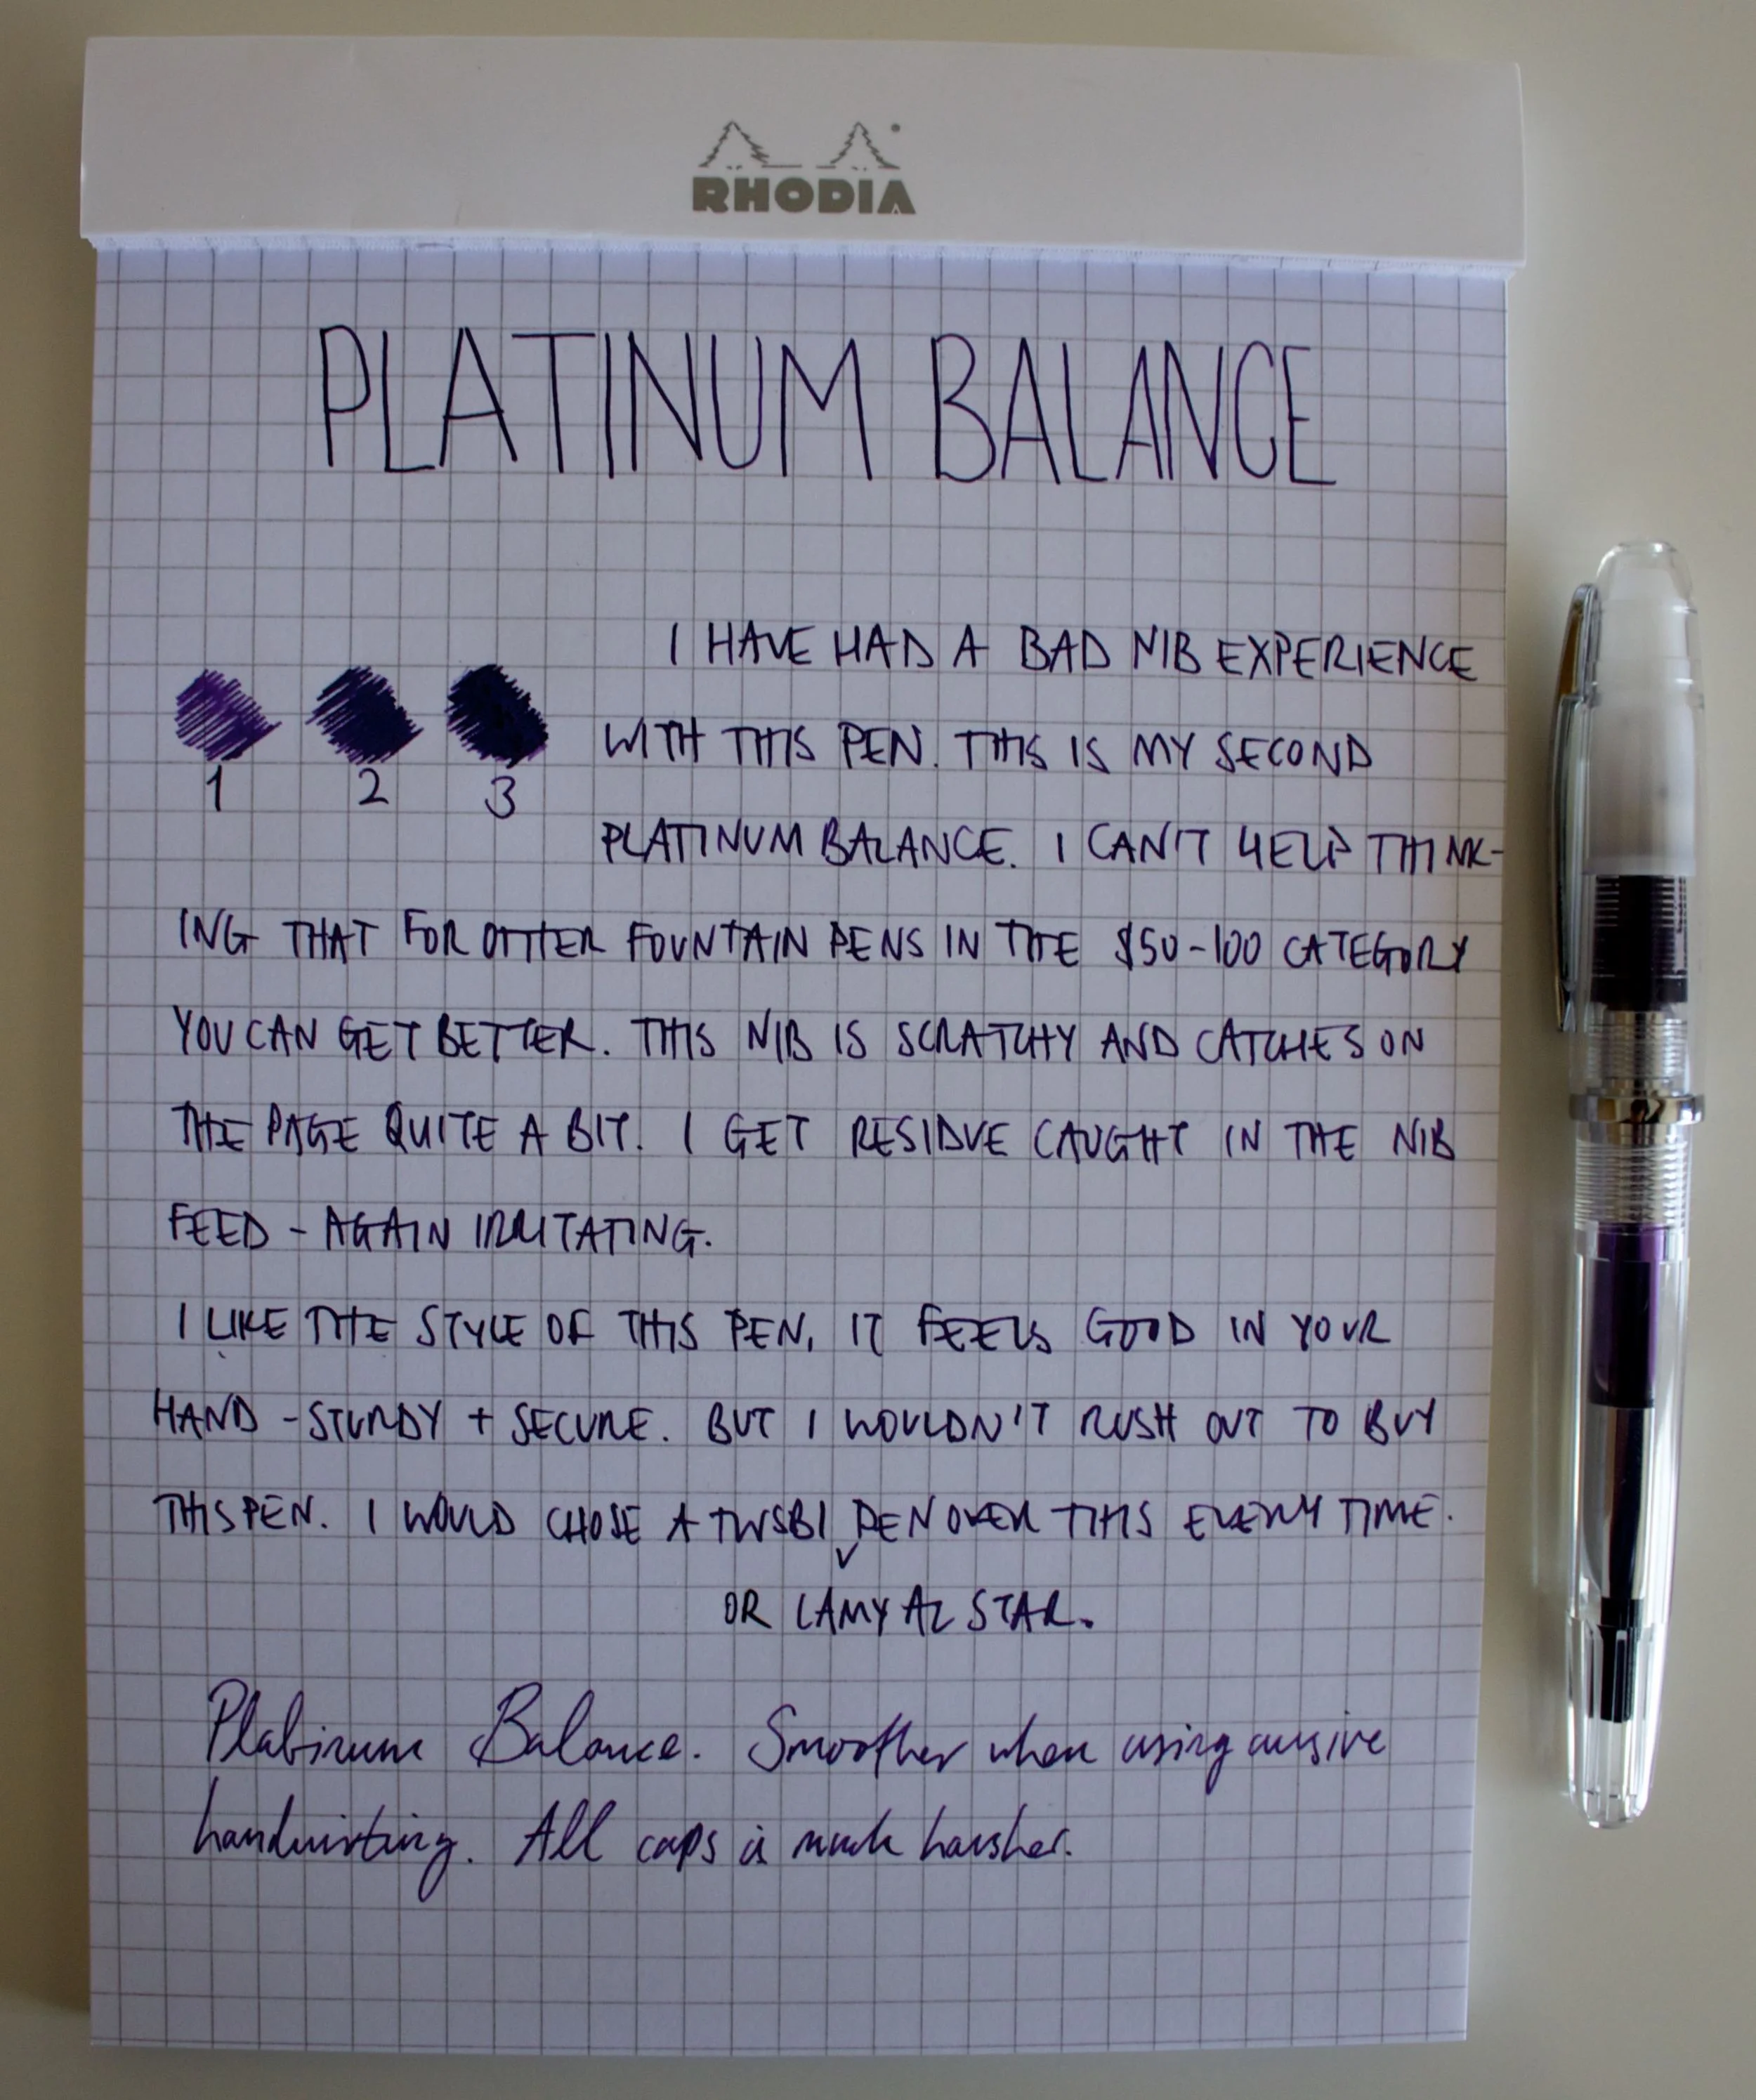 RHODIA
PLATINUM BALANCE
I HAVE HAD A BAD NIB EXPERIENCE
WITH THIS PEN. THIS IS MY SECOND
PLATINUM BALANCE. I CAN'T HELP THINK-
1 2 3
ING THAT FOR OTHER FOUNTAIN PENS IN THE $50-100 CATEGORY
YOU CAN GET BETTER. THIS NIB IS SCRATCHY AND CATCHES ON
THE PAGE QUITE A BIT. I GET RESIDUE CAUGHT IN THE NIB
FEED - AGAIN IRRITATING.
I LIKE THE STYLE OF THIS PEN, IT FEELS GOOD IN YOUR
HAND - STURDY + SECURE. BUT I WOULDN'T RUSH OUT TO BUY
THIS PEN. I WOULD CHOSE A TWSBI PEN OVER THIS EVERY TIME.
OR LAMY AL STAR.
Platinum Balance. Smoother when using cursive
handwriting. All caps is much harsher.